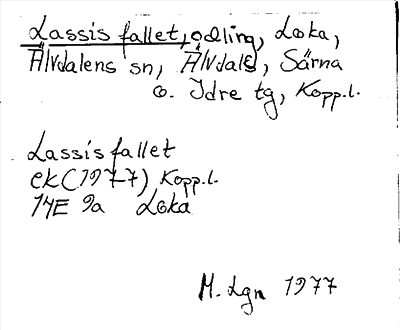 Lassis fallet, odling, Loka,
Älvdalens sn, Älvdals, Särna
o. Idre tg, Kopp.l.
Lassis fallet
ek (1977) Kopp.l.
14E 9a Loka
M. Lgn 1977